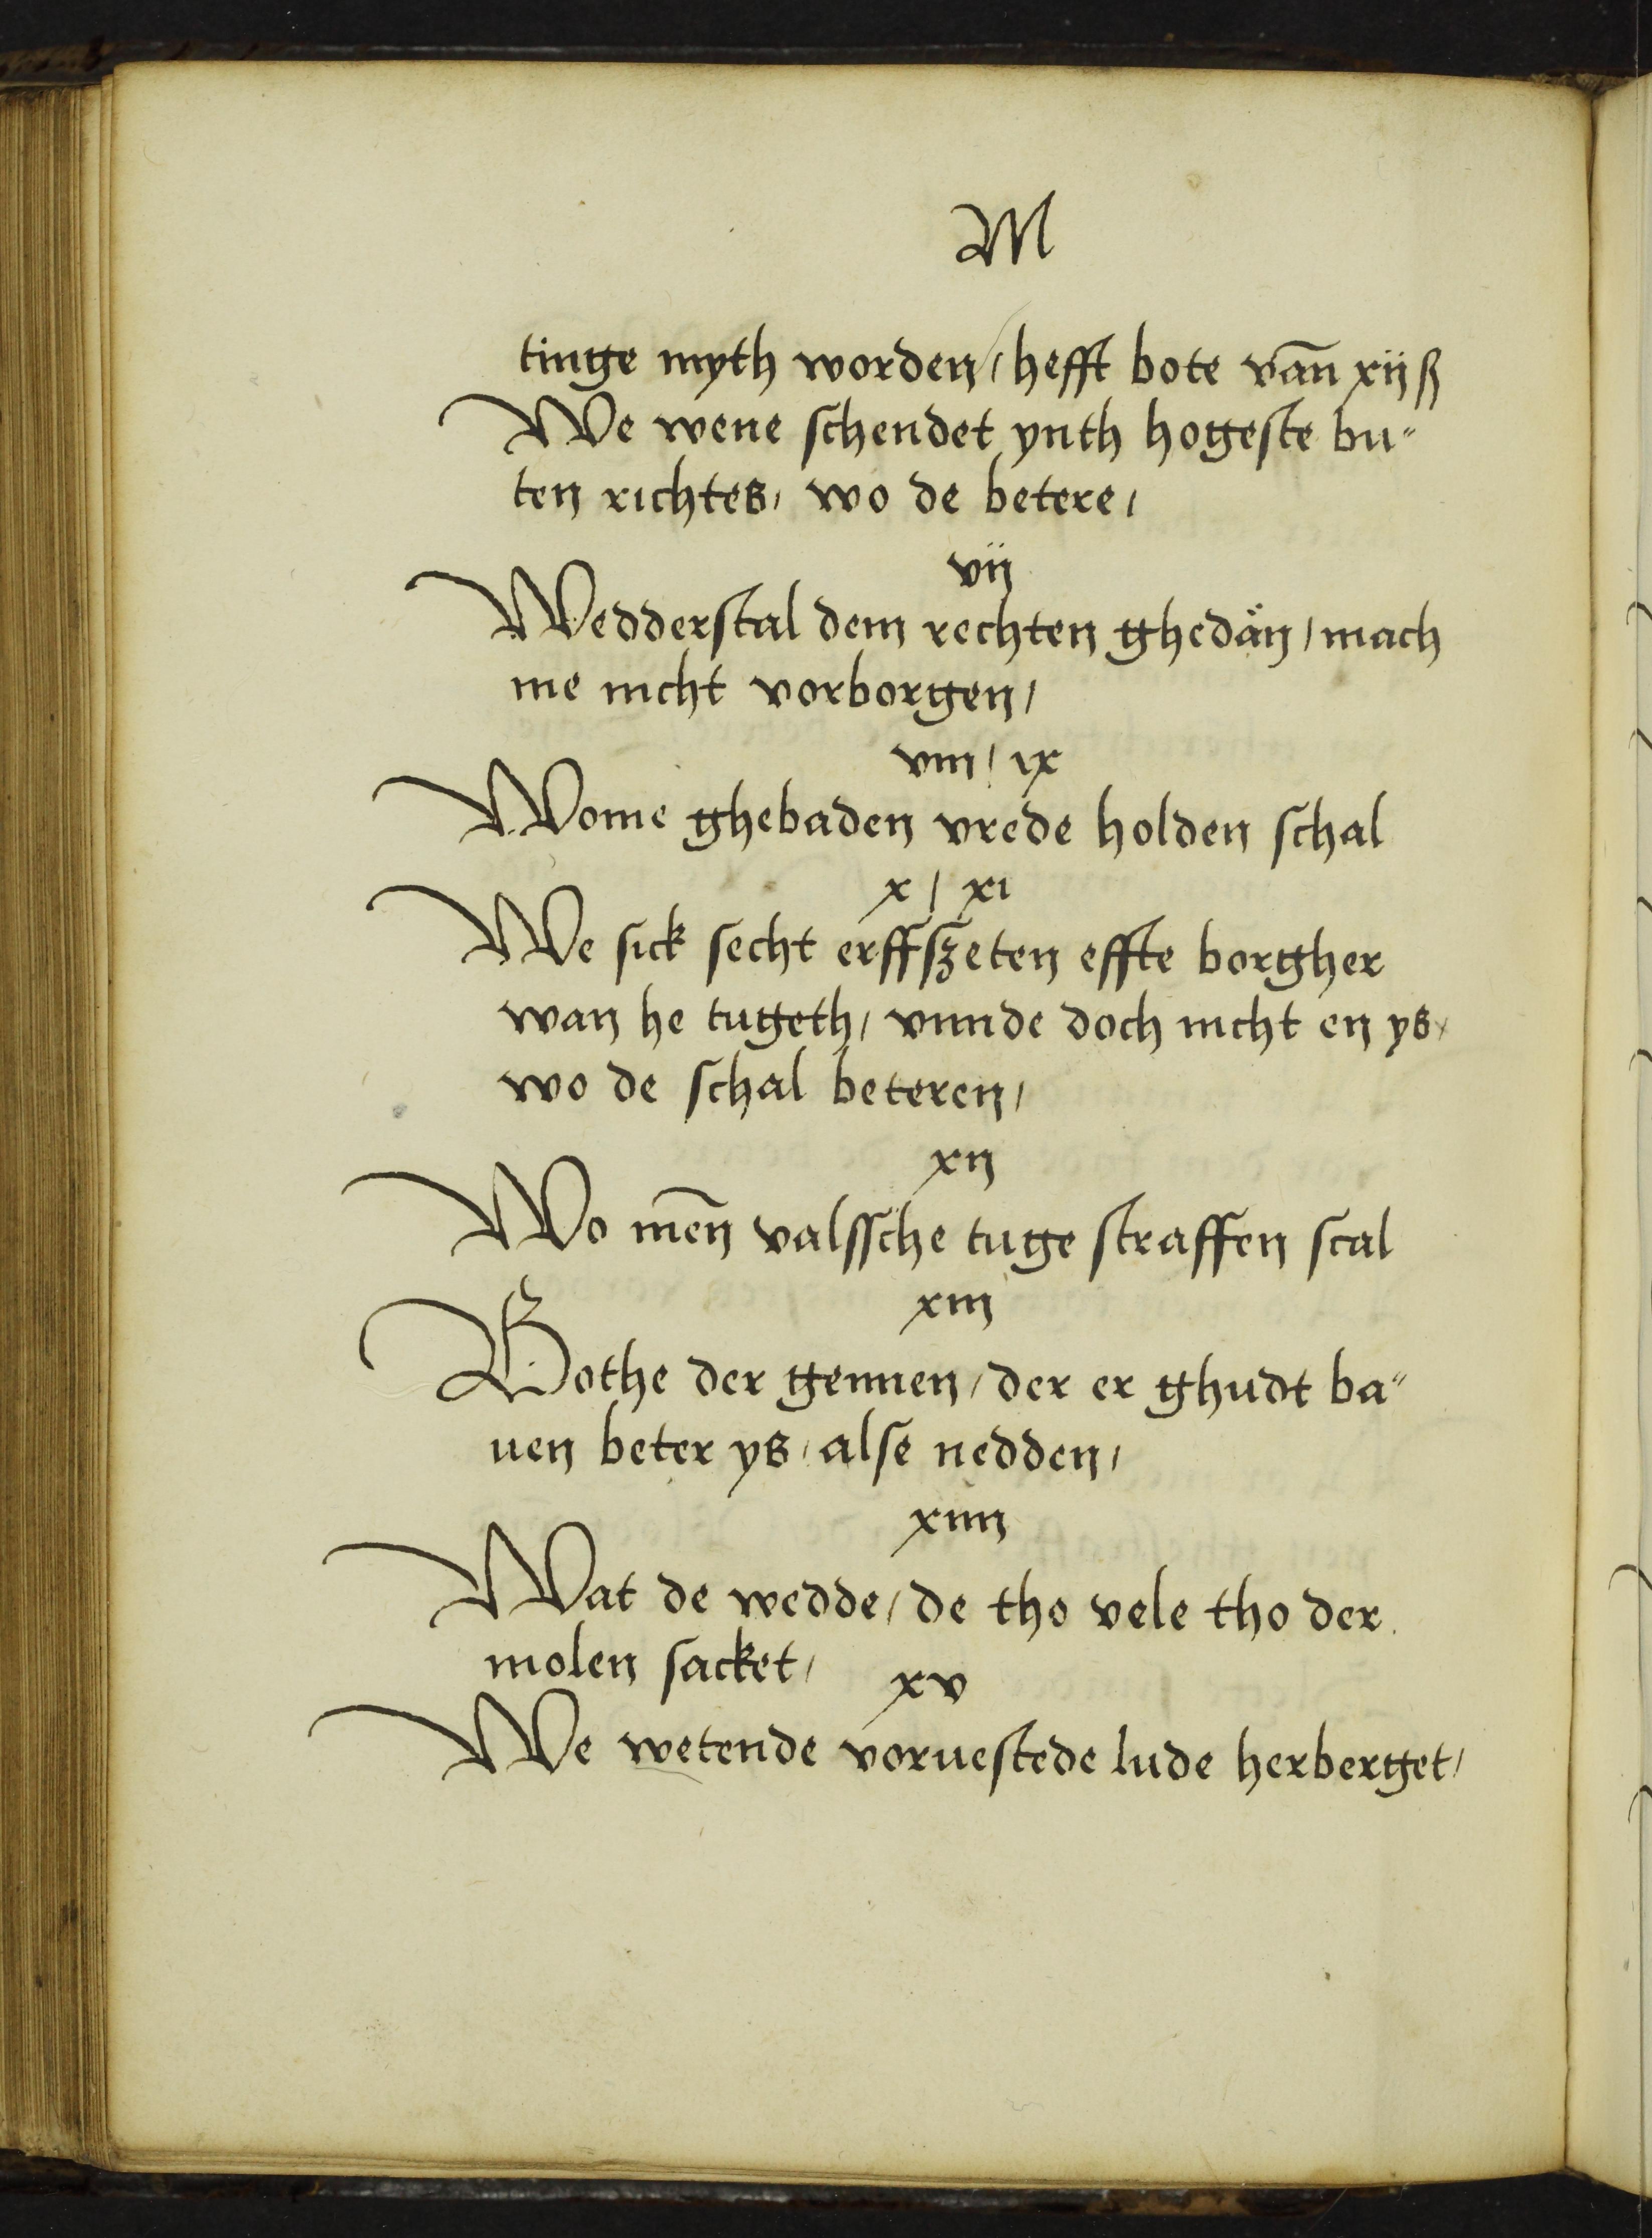 M
tinge myth worden / hefft bote vān xij ß
We wene schendet ynth hogeste bu"
ten richtes / wo de betere /
vij
Wedderstal dem rechten ghedån / mach
me nicht vorborgen /
viii / ix
Wome ghebaden vrede holden schal
x / xi
We sick secht erffszeten effte borgher
wan he tugeth / vnnde doch nicht en ys /
wo de schal beteren /
xij
Wo mēn valssche tuge straffen scal
xiij
Bothe der gennen / der er ghudt ba"
uen beter ys / alse nedden /
xiiij
Wat de wedde / de tho vele tho der
molen sacket /
xv
We wetende voruestede lude herberget /